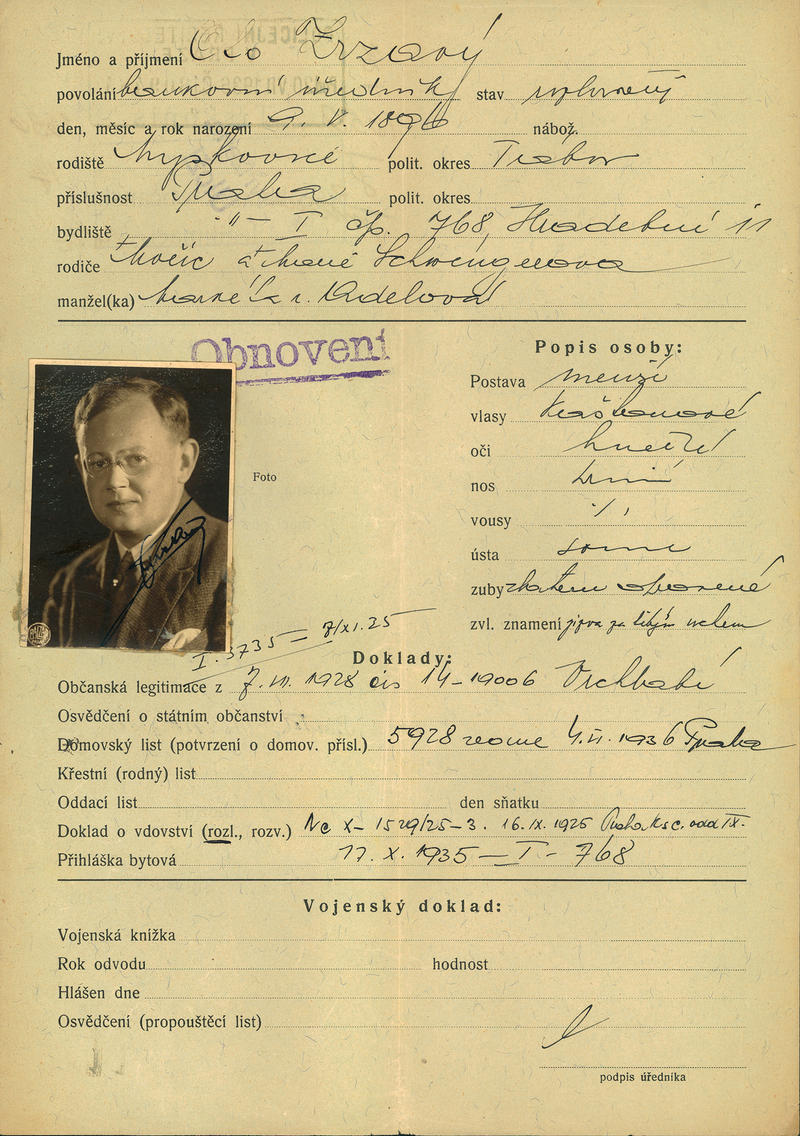 Jméno a příjmení Oto Zrzavý
povolání bankovní úředník stav rozvedený
den, měsíc a rok narození 9. V. 1896 nábož.
rodiště polit. okres Tábor
příslušnost Praha polit. okres
bydliště -"- I čp. 768, Hradební 11
rodiče a Schwingerova
manžel(ka) Markéta r.
Obnovení
Popis osoby:
Postava menší
vlasy kaštanové
oči hnědé
nos
vousy
ústa
zuby zlatem opravené
zvl. znamení jizva za uchem
Foto
I. 3735 — 7/XI. 25
Doklady:
Občanská legitimace z 7. 1928 čís 14-19006 Vrchlabí
Osvědčení o státním občanství
Domovský list (potvrzení o domov. přísl.) 5928 1936 Praha
Křestní (rodný) list
Oddací list den sňatku
Doklad o vdovství (rozl., rozv.) Nc X-1529/25-3. 16. IX. 1925 Praha odd IX.
Přihláška bytová 17. X. 1935 — I - 768
Vojenský doklad:
Vojenská knížka
Rok odvodu hodnost
Hlášen dne
Osvědčení (propouštěcí list)
podpis úředníka